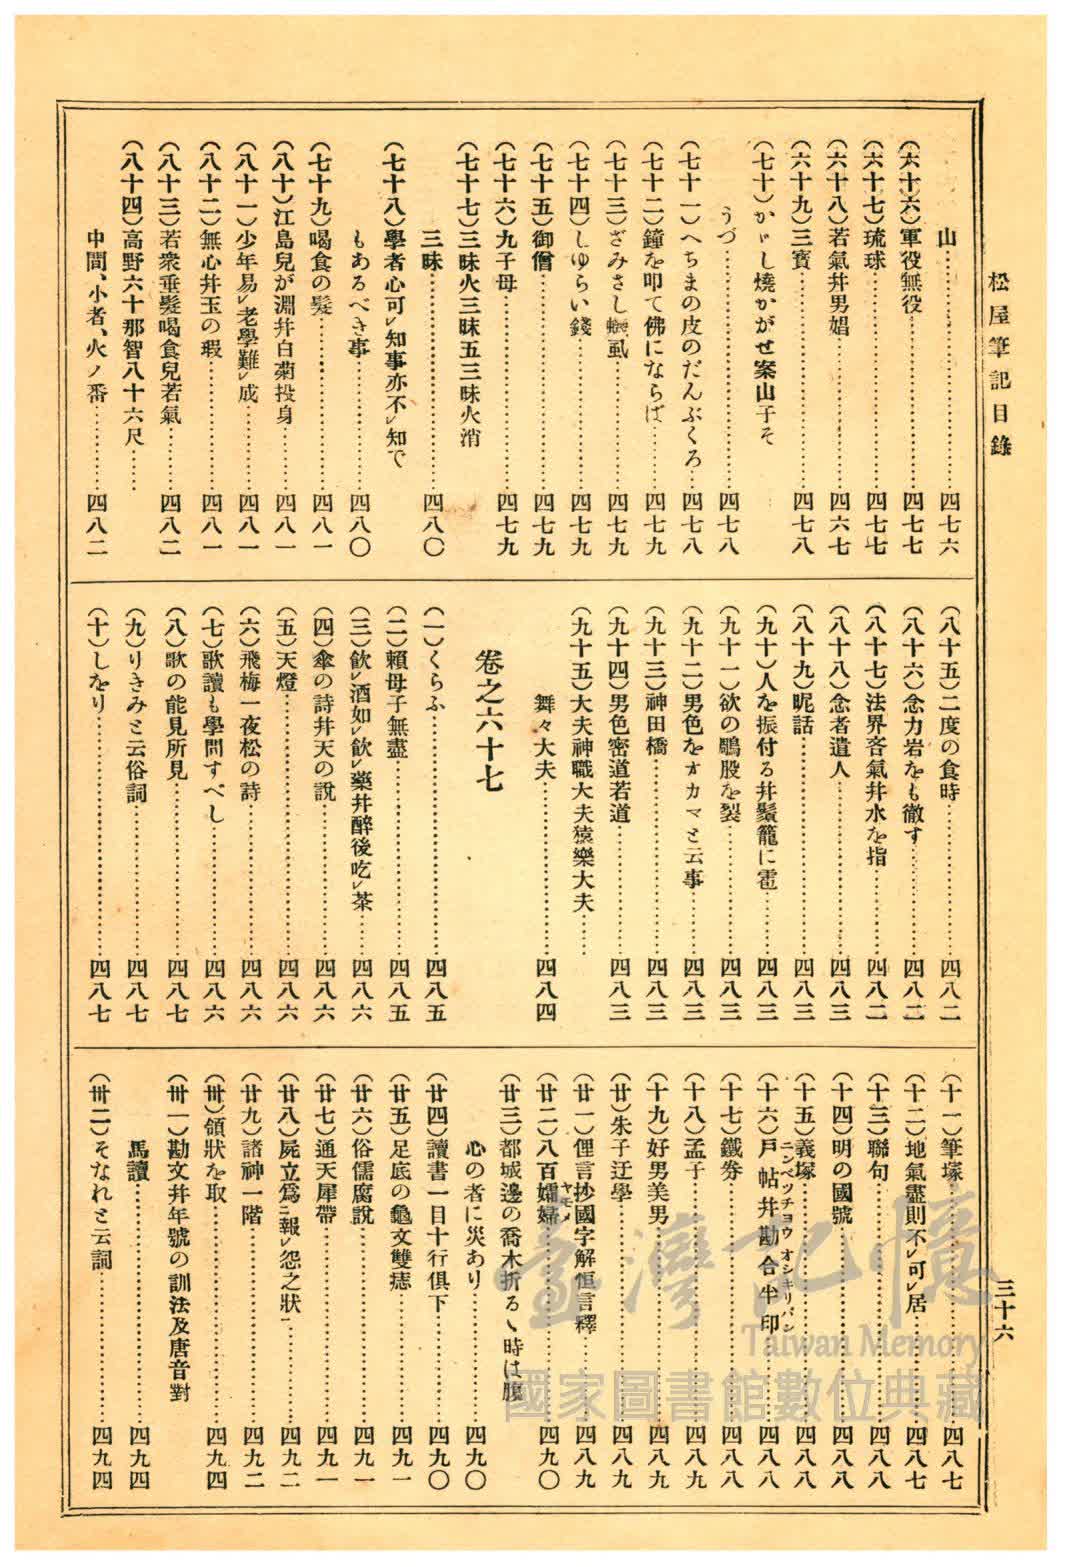 松屋筆記目錄
三十六
山……………四七六
(六十六)軍役無役……………四七七
(六十七)琉球……………四七七
(六十八)若氣幷男娼……………四六七
(六十九)三寶……………四七八
(七十)かゞし燒かがせ案山子そ
うづ……………四七八
(七十一)へちまの皮のだんぶくろ……四七八
(七十二)鐘を叩て佛にならば……四七九
(七十三)ざみさし蜿虱……………四七九
(七十四)しゆらい錢……………四七九
(七十五)御僧……………四七九
(七十六)九子母……………四七九
(七十七)三昧火三昧五三昧火消
三昧……………四八〇
(七十八)學者心可㆑知事亦不㆑知で
もあるべき事……………四八〇
(七十九)喝食の髮……………四八一
(八十)江島兒が淵幷白菊投身……四八一
(八十一)少年易㆑老學難㆑成……四八一
(八十二)無心幷玉の瑕……………四八一
(八十三)若衆垂髮喝食兒若氣……四八二
(八十四)高野六十那智八十六尺……
中間、小者、火ノ番……………四八二
(八十五)二度の食時……………四八二
(八十六)念力岩をも徹す……………四八二
(八十七)法界吝氣幷水を指……………四八二
(八十八)念者遣人……………四八三
(八十九)昵話……………四八三
(九十)人を振付る幷鬚籠に雹……四八三
(九十一)欲の鵰股を裂……………四八三
(九十二)男色をオカマと云事……四八三
(九十三)神田橋……………四八三
(九十四)男色密道若道……………四八三
(九十五)大夫神職大夫猿樂大夫……
舞々大夫……………四八四
卷之六十七
(一)くらふ……………四八五
(二)賴母子無盡……………四八五
(三)飮㆑酒如㆑飮㆑藥幷醉後吃㆑茶……四八六
(四)傘の詩幷天の說……………四八六
(五)天燈……………四八六
(六)飛梅一夜松の詩……………四八六
(七)歌讀も學問すべし……………四八六
(八)歌の能見所見……………四八七
(九)りきみと云俗詞……………四八七
(十)しをり……………四八七
(十一)筆塚……………四八七
(十二)地氣盡則不㆑可㆑居……………四八七
(十三)聯句……………四八八
(十四)明の國號……………四八八
(十五)義塚……………四八八
(十六)戶帖幷勘合半印……………四八八
ニンベツチヨウ オシキリバン
(十七)鐵券……………四八八
(十八)孟子……………四八九
(十九)好男美男……………四八九
(廿)朱子迂學……………四八九
(廿一)俚言抄國字解恒言釋……四八九
(廿二)八百孀婦……………四九〇
ヤモメ
(廿三)都城邊の喬木折るゝ時は腹
心の者に災あり……………四九〇
(廿四)讀書一目十行俱下……………四九〇
(廿五)足底の龜文雙痣……………四九一
(廿六)俗儒腐說……………四九一
(廿七)通天犀帶……………四九一
(廿八)屍立爲㆓報㆑怨之狀㆒……四九二
(廿九)諸神一階……………四九二
(卅)領狀を取……………四九四
(卅一)勘文幷年號の訓法及唐音對
馬讀……………四九四
(卅二)そなれと云詞……………四九四
臺灣記憶
Taiwan Memory
國家圖書館數位典藏